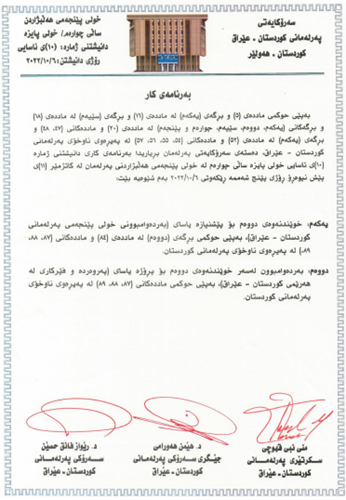 سەرۆکایەتی
پەرلەمانی کوردستان - عێراق
کوردستان - هەولێر
خولی پێنجەمی هەڵبژاردن
ساڵی چوارەم، خولی پایزە
دانیشتنی ژمارە: (١٠)ی ئاسایی
رۆژی دانیشتن: ٢٠٢٢/١٠/٦
بەرنامەی کار
بەپێی حوکمی ماددەی (٥) و بڕگەی (یەکەم) لە ماددەی (١٦) و بڕگەی (سێیەم) لە ماددەی (١٨)
و بڕگەکانی (یەکەم، دووەم، سێیەم، چوارەم و پێنجەم) لە ماددەی (٢٠) و ماددەکانی (٢٧، ٤٨) و
بڕگەی (یەکەم) لە ماددەی (٥٢) و ماددەکانی (٥٤، ٥٥، ٥٦، ٥٧) لە پەیڕەوی ناوخۆی پەرلەمانی
کوردستان - عێراق، دەستەی سەرۆکایەتی پەرلەمان بڕیاریدا بەرنامەی کاری دانیشتنی ژمارە
(١٠)ی ئاسایی خولی پایزە ساڵی چوارەم لە خولی پێنجەمی هەڵبژاردنی پەرلەمان لە کاتژمێر (١١)ی
پێش نیوەڕۆ رۆژی پێنج شەممە رێکەوتی ٢٠٢٢/١٠/٦ بەم شێوەیە بێت:
یەکەم: خوێندنەوەی دووەم بۆ پێشنیازە یاسای (بەردەوامبوونی خولی پێنجەمی پەرلەمانی
کوردستان - عێراق)، بەپێی حوکمی بڕگەی (دووەم) لە ماددەی (٨٤) و ماددەکانی (٨٧، ٨٨،
٨٩) لە پەیڕەوی ناوخۆی پەرلەمانی کوردستان.
دووەم: بەردەوامبوون لەسەر خوێندنەوەی دووەم بۆ پڕۆژە یاسای (پەروەردە و فێرکاری لە
هەرێمی کوردستان - عێراق)، بەپێی حوکمی ماددەکانی (٨٧، ٨٨، ٨٩) لە پەیڕەوی ناوخۆی
پەرلەمانی کوردستان.
د. رێواز فائق حسێن
سەرۆکی پەرلەمانی
کوردستان - عێراق
د. هێمن هەورامی
جێگری سەرۆکی پەرلەمانی
کوردستان - عێراق
منی نبی قهوچی
سکرتێری پەرلەمانی
کوردستان - عێراق